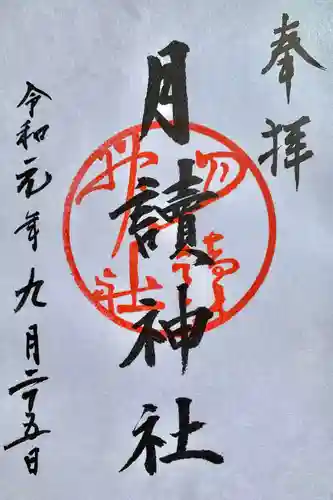 奉拝
月讀神社
令和元年九月二十五日